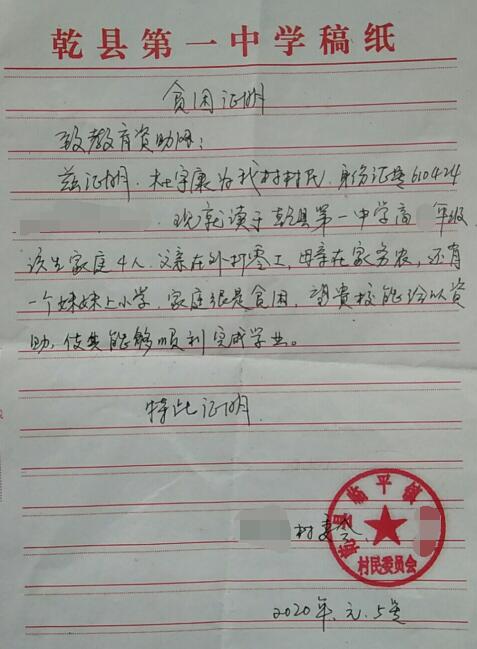 乾县第一中学稿纸
贫困证明
致教育资助网：
兹证明，杜宇康为我村村民，身份证号610424
现就读于乾县第一中学高 年级
该生家庭4人，父亲在外打零工，母亲在家务农，还有
一个妹妹上小学，家庭很是贫困，望贵校能给以资
助，使其能够顺利完成学业。
特此证明
乾县临平镇
村委会
村民委员会
2020年元.5号